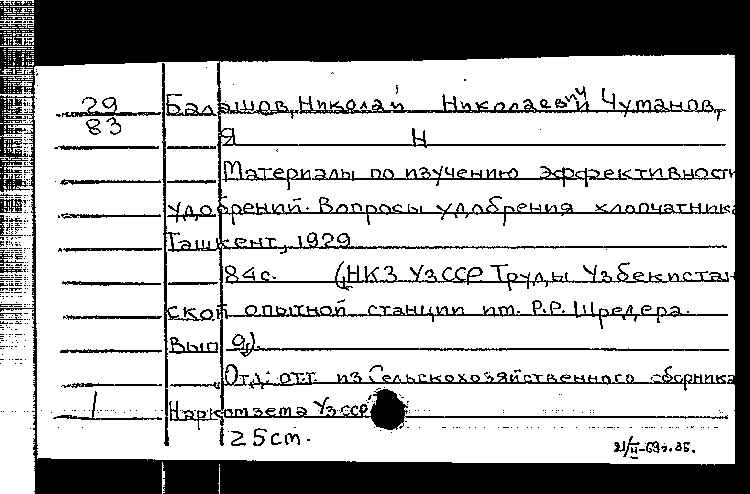 29
83
Балашов, Николай Николаевич и Чуманов,
Я Н
Материалы по изучению эффективности
удобрений. Вопросы удобрения хлопчатника
Ташкент, 1929
84с. (НКЗ УзССР Труды Узбекистан
ской опытной станции им. Р.Р. Шредера.
Вып 9).
"Отд: отт. из Сельскохозяйственного сборника
Наркомзема УзССР
1
25cm.
21/II-69г. 35.